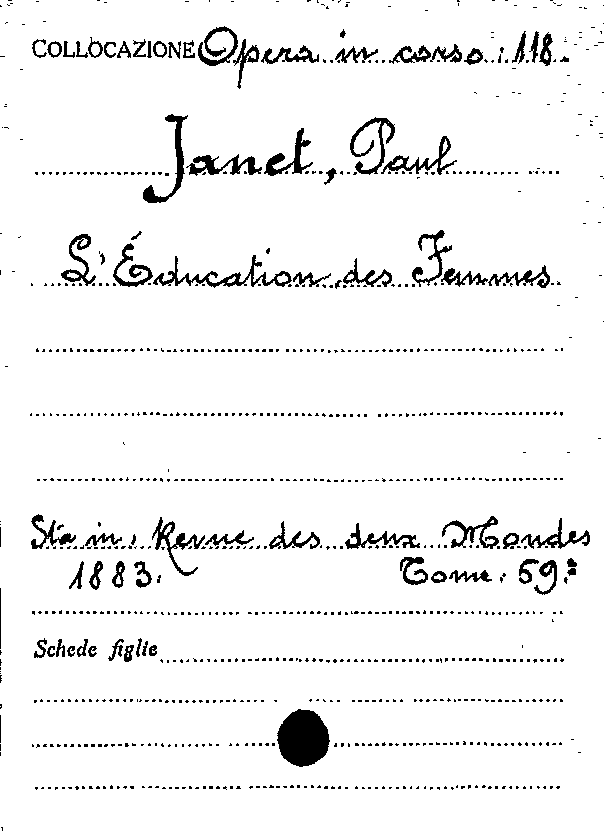 COLLOCAZIONE Opera in corso: 118.
Janet, Paul
L'Éducation des Femmes
Sta in: Revue des deux Mondes
1883. Tome: 59º
Schede figlie